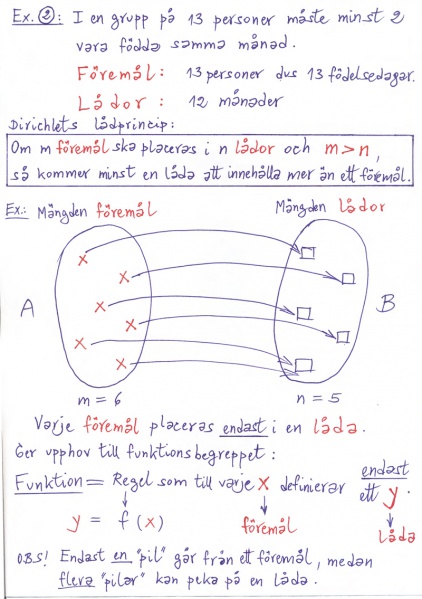 Ex. 2: I en grupp på 13 personer måste minst 2
vara födda samma månad.
Föremål: 13 personer dvs 13 födelsedagar.
Lådor: 12 månader
Dirichlets lådprincip:
Om m föremål ska placeras i n lådor och m > n,
så kommer minst en låda att innehålla mer än ett föremål.
Ex.: Mängden föremål Mängden lådor
A B
m = 6 n = 5
Varje föremål placeras endast i en låda.
Ger upphov till funktionsbegreppet:
Funktion = Regel som till varje x definierar endast ett y.
y = f(x) föremål låda
OBS! Endast en "pil" går från ett föremål, medan
flera "pilar" kan peka på en låda.